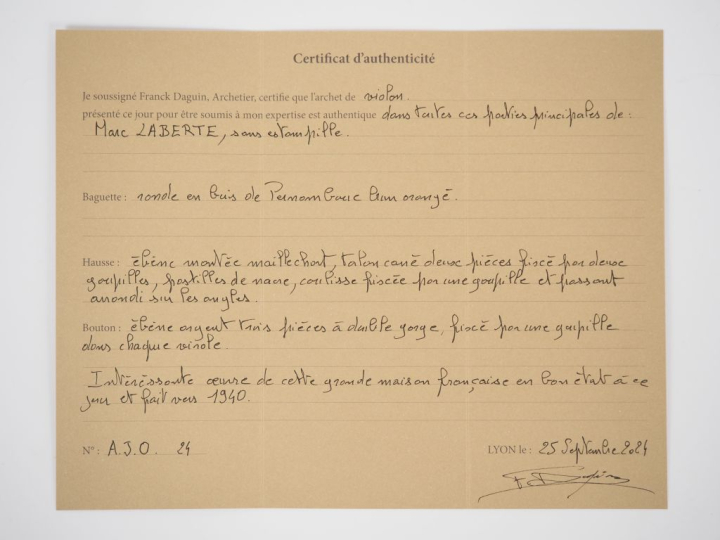 Certificat d'authenticité
Je soussigné Franck Daguin, Archetier, certifie que l'archet de violon.
présenté ce jour pour être soumis à mon expertise est authentique dans toutes ces parties principales de :
Marc LABERTE, sans estampille.
Baguette : ronde en bois de Pernambouc brun orangé.
Hausse : ébène montée maillechort, talon carré deux pièces fixé par deux
goupilles, pastilles de nacre, coulisse fixée par une goupille et passant
arrondi sur les angles.
Bouton : ébène argent trois pièces à double gorge, fixé par une goupille
dans chaque virole.
Intéréssante œuvre de cette grande maison française en bon état à ce
jour et fait vers 1940.
N° : A.J.O. 24
LYON le : 25 Septembre 2024